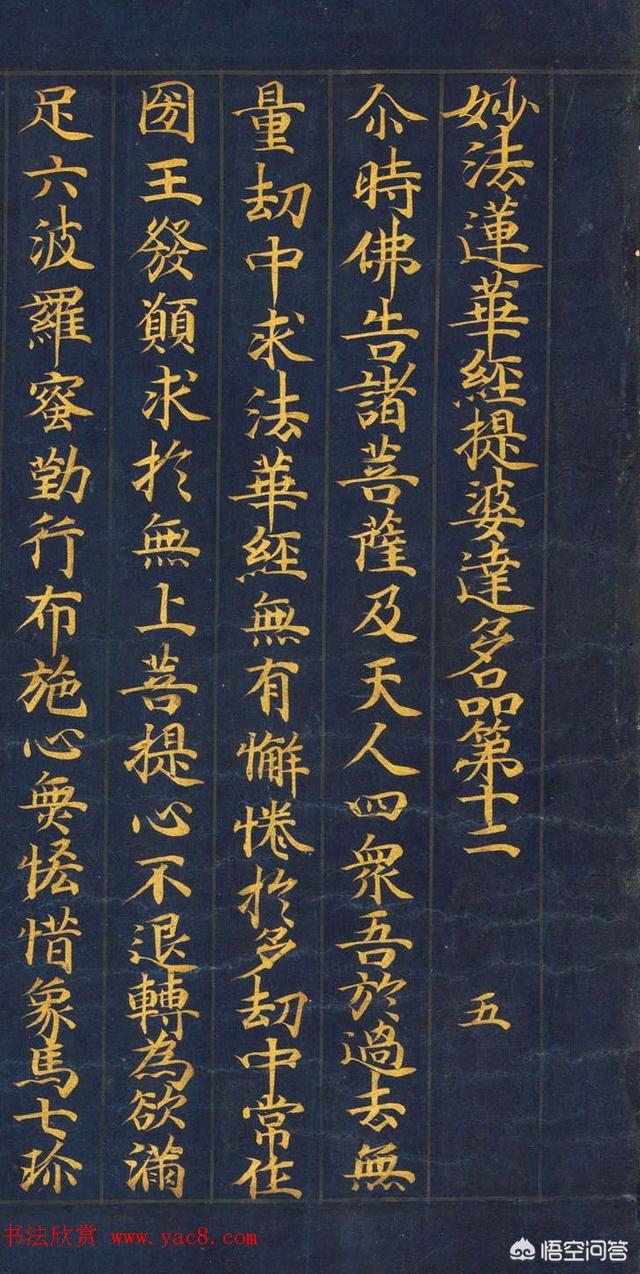 妙法蓮華經提婆達多品第十二 五
尒時佛告諸菩薩及天人四衆吾於過去無
量劫中求法華經無有懈惓於多劫中常作
國王發願求於無上菩提心不退轉為欲滿
足六波羅蜜勤行布施心無悋惜象馬七珎
书法欣赏 www.yac8.com
悟空问答